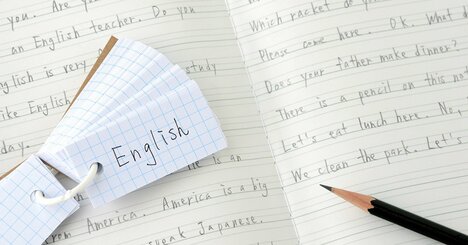 you. Are You
an English teacher. Do you
English is very
study
like English
day.
English
is an
America. America is a big
from
speak Japanese.
Which racket do
Please come here. OK. What
Does your father make dinner?
There is a pencil on this
Let's eat lunch here. No,
We clean the park. Let's